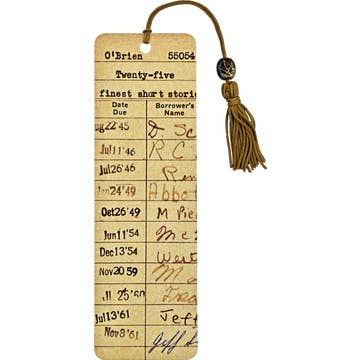 O'Brien 55054
Twenty-five
finest short stori
Date Due Borrower's Name
ug22'45 D. Sc
Jul11'46 R C
Jul26'46 Ren
Jan24'49 Abbot
Oct26'49 M Pie
Jun11'54 Mc
Dec13'54 West
Nov20 59 M
Jl 25'60
Jul13'61 Jeff
Nov8'61 Jeff